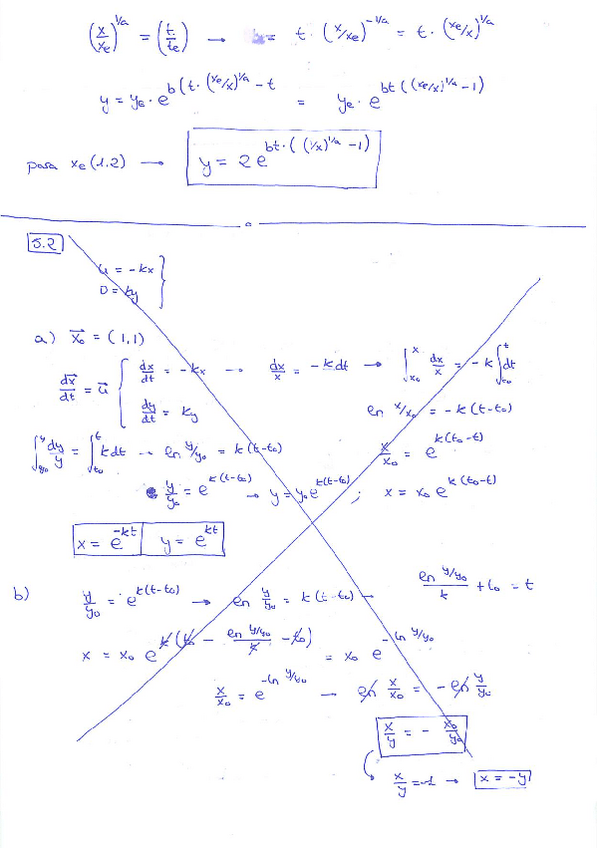 (x/xe)^1/a = (t/te) → = t · (x/xe)^-1/a = t · (xe/x)^1/a
y = ye · e^b(t · (xe/x)^1/a - t = ye · e^bt((xe/x)^1/a - 1)
para xe(1,2) → y = 2e^bt·((1/x)^1/a - 1)
5.2
u = -kx
υ = ky
a) x⃗o = (1,1)
dx⃗/dt = u⃗ { dx/dt = -kx → dx/x = -kdt → ∫xo^x dx/x = -k ∫to^t dt
dy/dt = ky ln x/xo = -k(t-to)
∫yo^y dy/y = ∫to^t kdt → ln y/yo = k(t-to) x/xo = e^k(to-t)
y/yo = e^k(t-to) → y = yo e^k(t-to) ; x = xo e^k(to-t)
x = e^-kt y = e^kt
b) y/yo = e^k(t-to) → ln y/yo = k(t-to) → ln y/yo / k + to = t
x = xo e^k(to - ln y/yo / k - to) = xo e^-ln y/yo
x/xo = e^-ln y/yo → ln x/xo = -ln y/yo
x/y = - xo/yo
x/y = -1 → x = -y